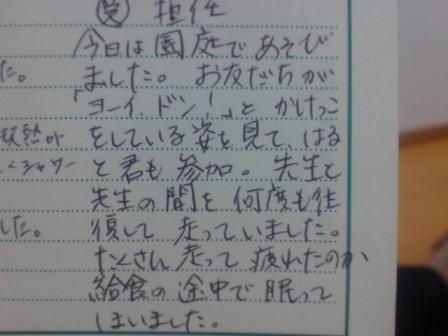 担任
今日は園庭であそび
た。 ました。お友だちが
「ヨーイ、ドン!」と かけっこ
をしている姿を見て、はる
シャワー と君も参加。先生と
先生の間を何度も往
した。 復して走っていました。
たくさん走って疲れたのか、
給食の途中で眠って
しまいました。